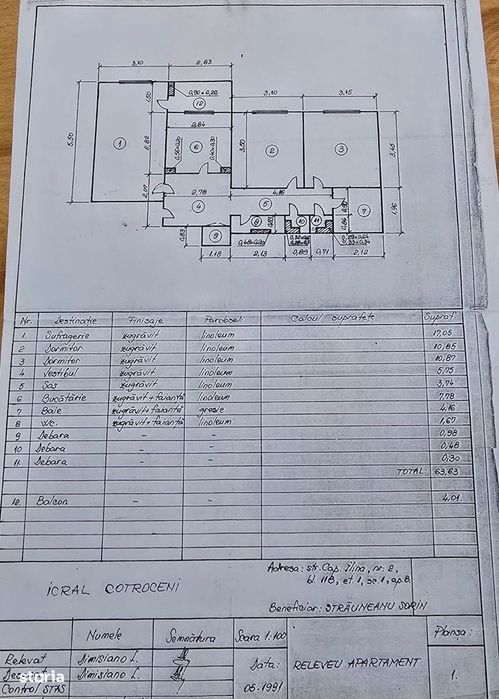 3,10
2,63
5,50
1,50
0,90×0,26
12
3,10
3,15
2,84
1
2,82
6
3,50
2
3
3,45
2,07
2,78
4,16
4
5
7
1,96
8
10
11
0,83
9
1,18
2,13
0,89
0,71
2,12
Nr. Destinație Finisaje Pardoseli Calcul suprafețe Supraf.
1. Sufragerie zugrăvit linoleum 17,05
2 Dormitor zugrăvit linoleum 10,85
3 Dormitor zugrăvit linoleum 10,87
4 Vestibul zugrăvit linoleum 5,75
5 Sas zugrăvit linoleum 3,74
6 Bucătărie zugrăvit+faianță linoleum 7,78
7 Baie zugrăvit+faianță gresie 4,16
8 Wc. zugrăvit+faianță linoleum 1,67
9 Debara - - 0,98
10 Debara - - 0,48
11. Debara - - 0,30
TOTAL: 63,63
12. Balcon - - 4,01
Adresa: str. Cap. Ilina, nr. 2,
bl. 11B, et. 1, sc. 1, ap. 8.
ICRAL COTROCENI
Beneficiar: STRĂUNEANU SORIN
Numele Semnătura Scara 1:100 Planșa:
Relevat Dimisiano L. Data: RELEVEU APARTAMENT
Dimisiano L. 06-1991 1.
Control STAS
storia